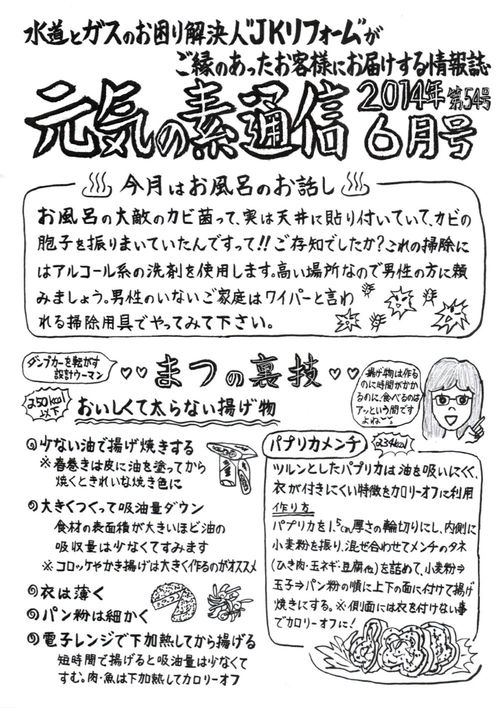 水道とガスのお困り解決人"JKリフォーム"が
ご縁のあったお客様にお届けする情報誌
元気の素通信
2014年 第54号
6月号
今月はお風呂のお話し
お風呂の大敵のカビ菌って、実は天井に貼り付いていて、カビの
胞子を振りまいていたんですって!!ご存知でしたか?これの掃除に
はアルコール系の洗剤を使用します。高い場所なので男性の方に頼
みましょう。男性のいないご家庭はワイパーと言わ
れる掃除用具でやってみて下さい。
ダンプカーを転がす
設計ウーマン
♡♡まつの裏技♡♡
250kcal
以下
おいしくて太らない揚げ物
揚げ物は作る
のに時間がかか
るのに、食べるのは
アッという間です
よね〜
㋐少ない油で揚げ焼きする
※春巻きは皮に油を塗ってから
焼くときれいな焼き色に
大きくつくって吸油量ダウン
食材の表面積が大きいほど油の
吸収量は少なくてすみます
※コロッケやかき揚げは大きく作るのがオススメ
衣は薄く
パン粉は細かく
電子レンジで下加熱してから揚げる
短時間で揚げると吸油量は少なくて
すむ。肉・魚は下加熱してカロリーオフ
パプリカメンチ
234kcal
ツルンとしたパプリカは油を吸いにくく、
衣が付きにくい特徴をカロリーオフに利用
作り方
パプリカを1.5cm厚さの輪切りにし、内側に
小麦粉を振り、混ぜ合わせてメンチのタネ
(ひき肉・玉ネギ・豆腐他)を詰めて、小麦粉⇒
玉子⇒パン粉の順に上下の面に付けて揚げ
焼きにする。※側面には衣を付けない事
でカロリーオフに!